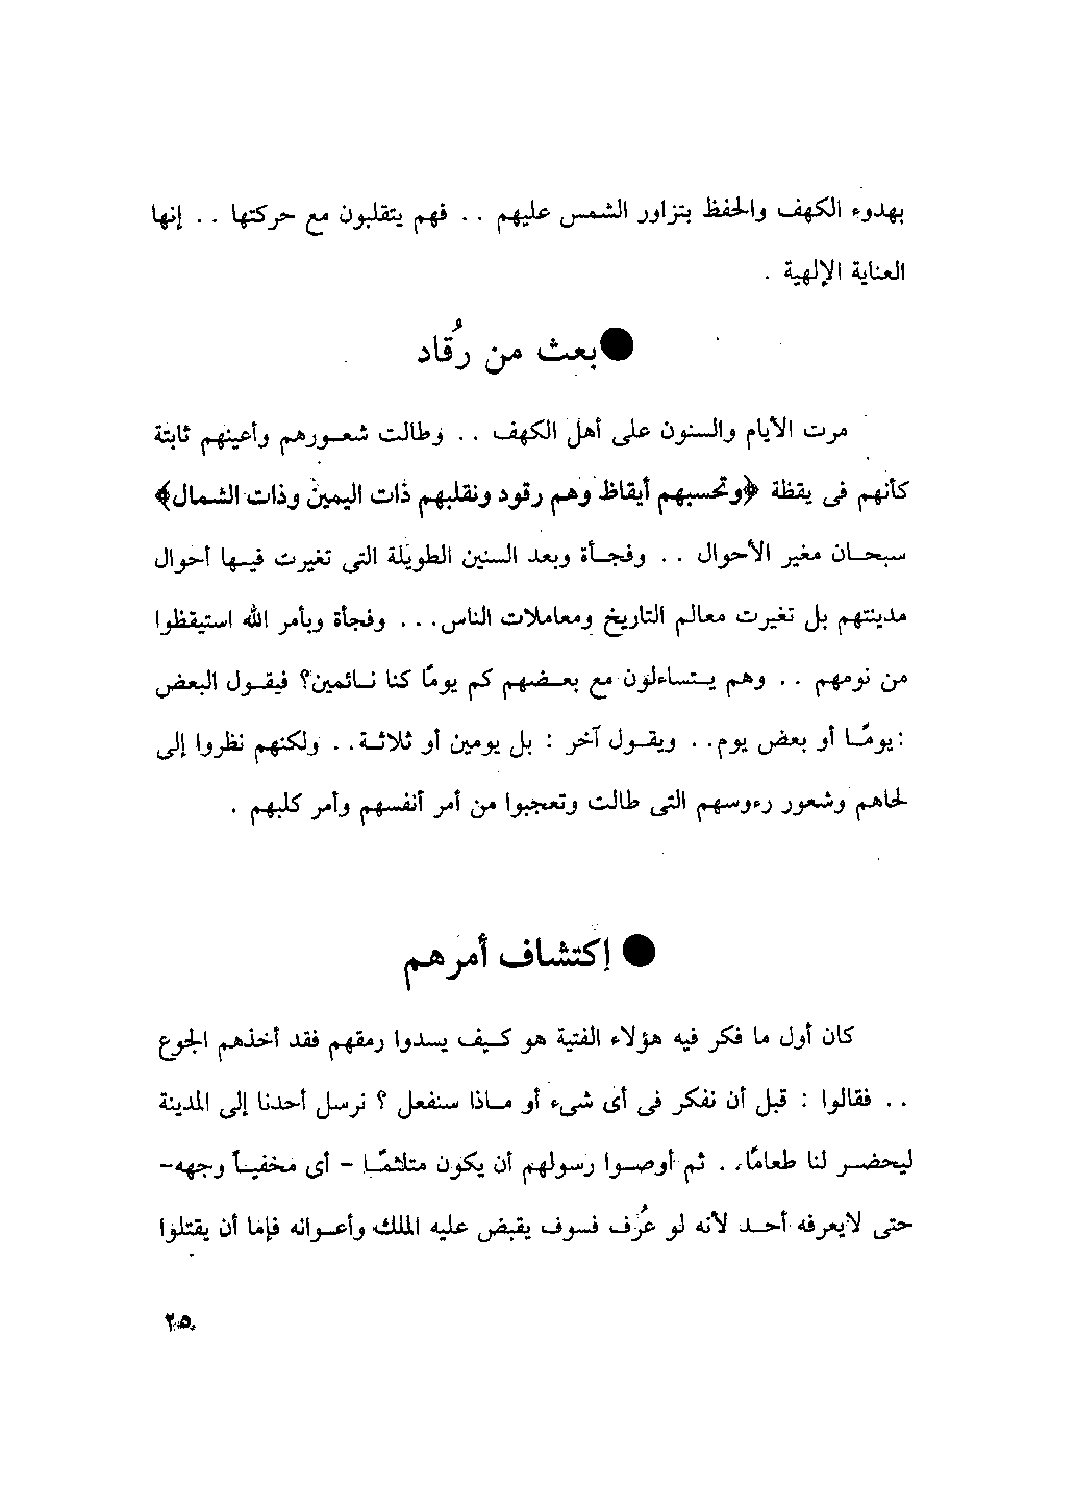 بهدوء الكهف والحفظ بتزاور الشمس عليهم . . فهم يتقلبون مع حركتها . . إنها
العناية الإلهية .
●بعث من رُقاد
مرت الأيام والسنون على أهل الكهف . . وطالت شعـورهم وأعينهم ثابتة
كأنهم فى يقظة ﴿وتحسبهم أيقاظ وهم رقود ونقلبهم ذات اليمين وذات الشمال﴾
سبحـان مغير الأحوال . . وفجـأة وبعد السنين الطويلة التى تغيرت فيـها أحوال
مدينتهم بل تغيرت معالم التاريخ ومعاملات الناس. . . وفجأة وبأمر الله استيقظوا
من نومهم . . وهم يـتساءلون مع بعـضهم كم يومًا كنا نـائمين؟ فيقـول البعض
:يومًـا أو بعض يوم. . ويقـول آخر : بل يومين أو ثلاثـة. . ولكنهم نظروا إلى
لحاهم وشعور رءوسهم التى طالت وتعجبوا من أمر أنفسهم وأمر كلبهم .
● إكتشاف أمرهم
كان أول ما فكر فيه هؤلاء الفتية هو كـيف يسدوا رمقهم فقد أخذهم الجوع
. . فقالوا : قبل أن نفكر فى أى شىء أو مـاذا سنفعل ؟ نرسل أحدنا إلى المدينة
ليحضـر لنا طعامًا. . ثم أوصـوا رسولهم أن يكون متلثمًـا - أى مخفيـاً وجهه-
حتى لايعرفه أحـد لأنه لو عُرف فسوف يقبض عليه الملك وأعـوانه فإما أن يقتلوا
٢٥